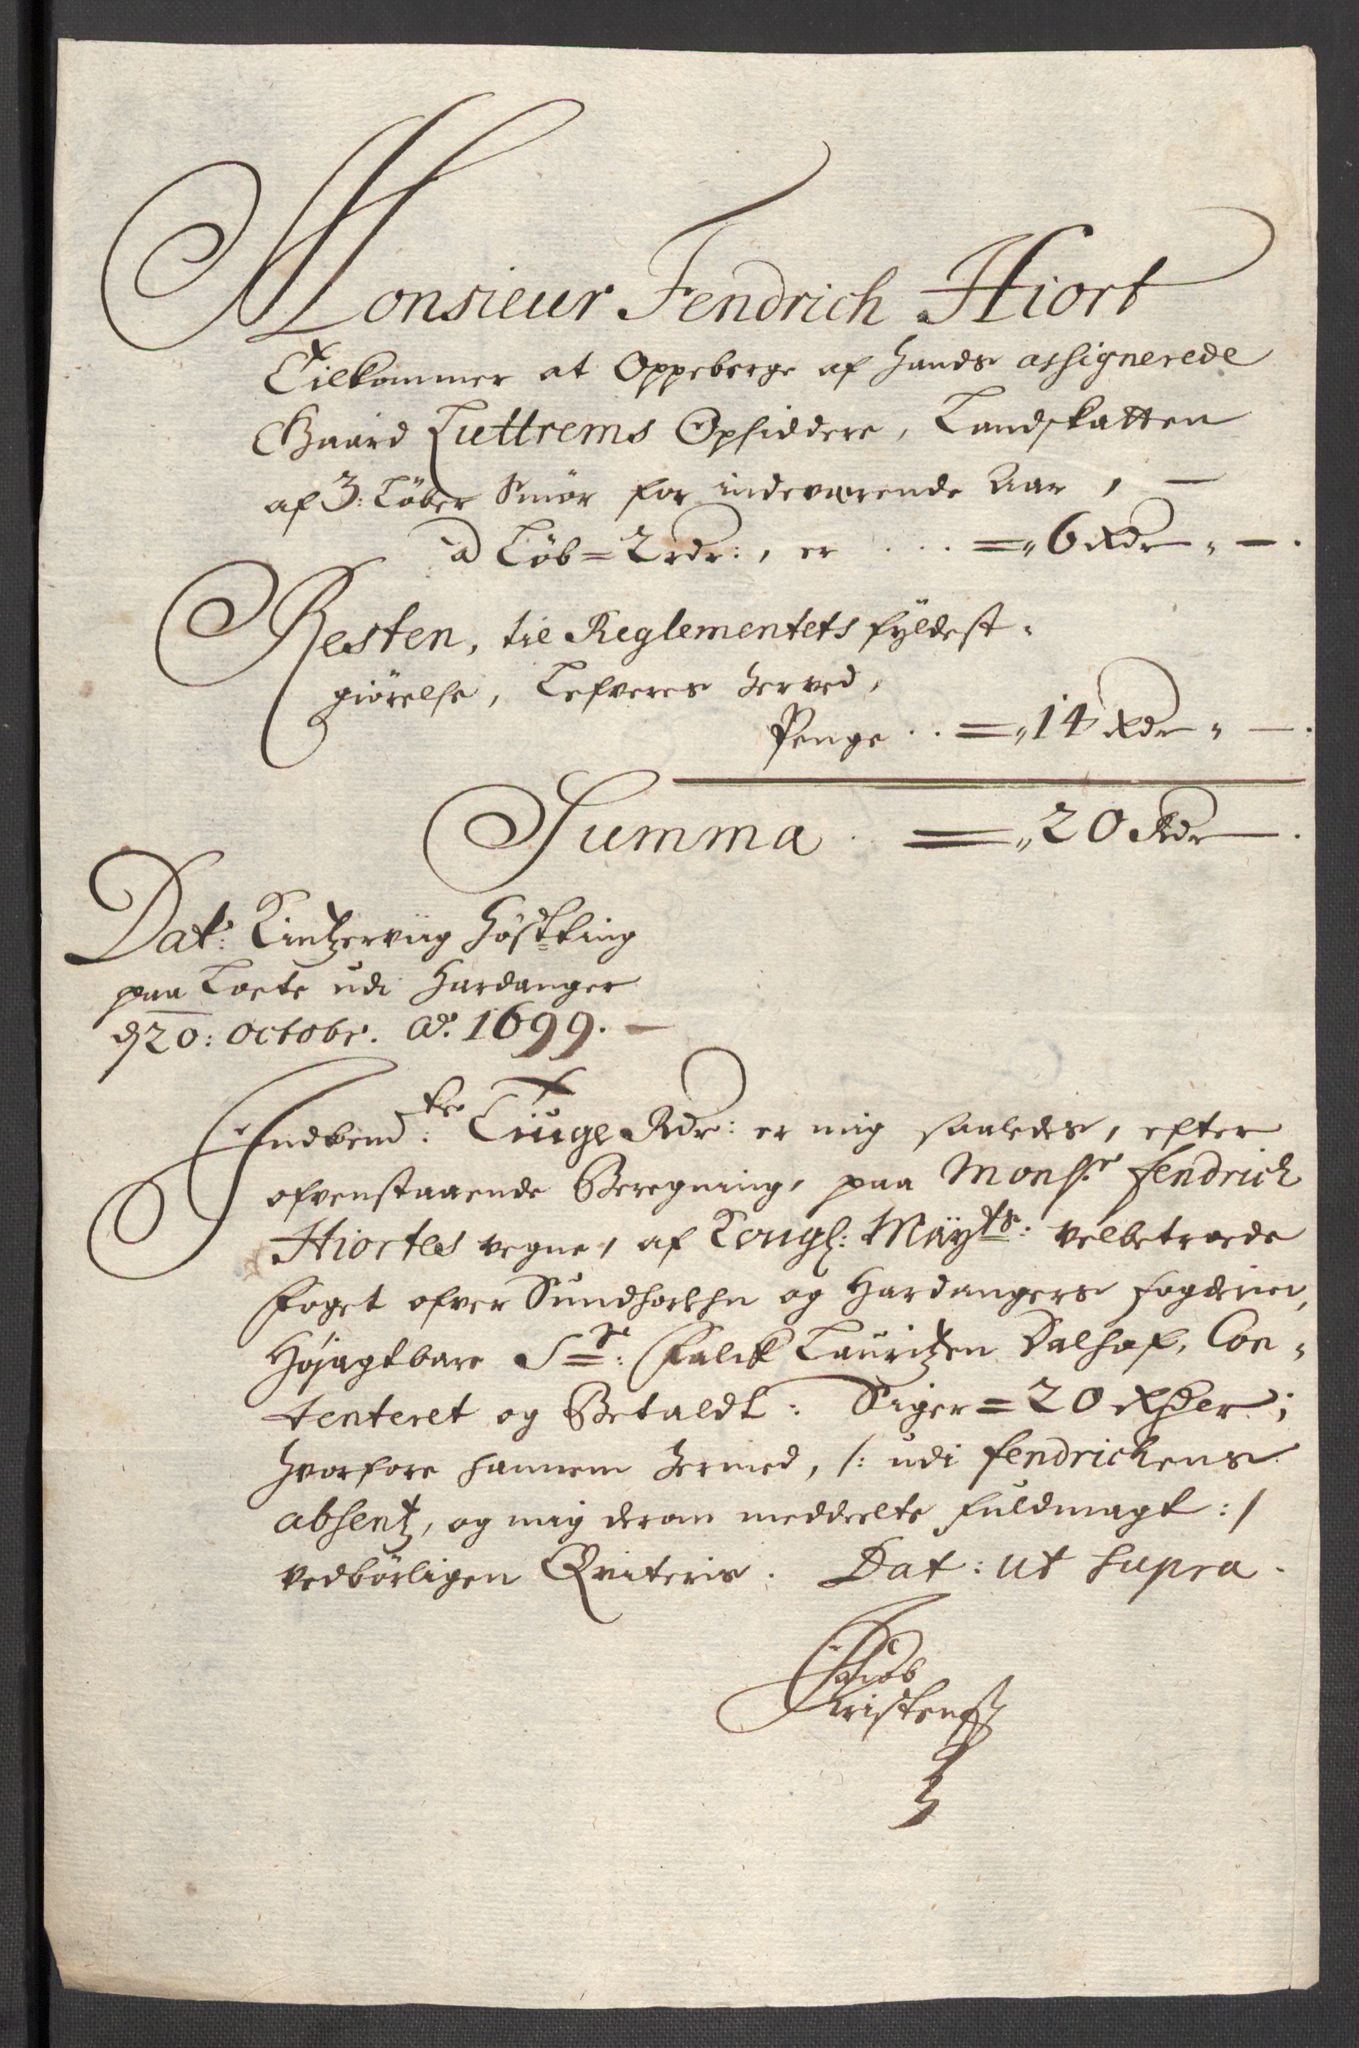 Monsieur Fendrich Hiort
Tilkommer at Oppeberge af hands assignerede
Gaard Luttrems Opsiddere, Landskatten
af 3: Løber Smør for indeværende Aar, —
a Løb = 2 rdr:, er . . . =„ 6 Rdr „ — .
Resten, til Reglementets fyldest-
giørelse, Lefveres herved,
Penge . . =„ 14 Rdr „ — .
Summa . =„ 20 Rdr — .
Dat: Kintzerviig Høstting
paa Loete udi Hardanger
d 20: octobr. Ao. 1699. —
Tiuge Rdr: er mig saaledes, efter
ofvenstaaende Beregning, paa Monsr. Fendrich
Hiortes vegne, af Kongl: Mayts: velbetroede
Foget ofver Sundhorlehn og Hardangers fogderier,
Høyagtbare Sr: Falck Lauritzen Dalhof, Con-
tenteret og Betaldt: Siger = 20 Rdr;
hvorfore hannem hermed, /: udi fendrickens
absentz, og mig derom meddeelte fuldmagt :/
vedbörligen Qviteris. Dat: ut supra.
Jacob
Christens